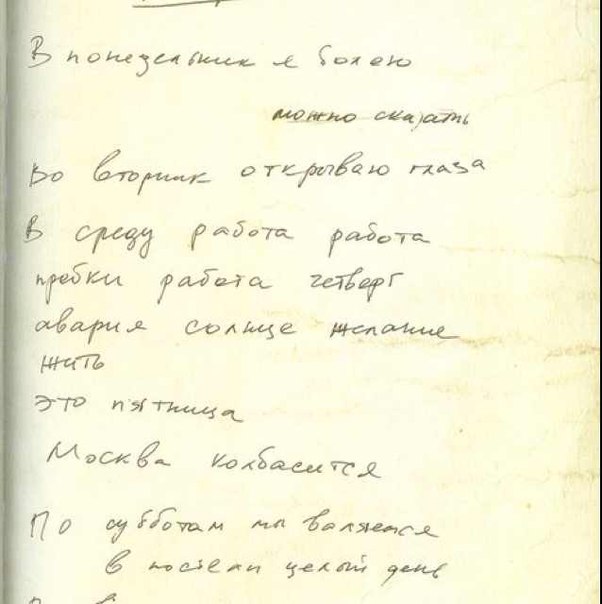 В понедельник я болею
можно сказать
Во вторник открываю глаза
В среду работа работа
пробки работа четверг
авария солнце желание
жить
это пятница
Москва колбасится
По субботам мы валяемся
в постели целый день